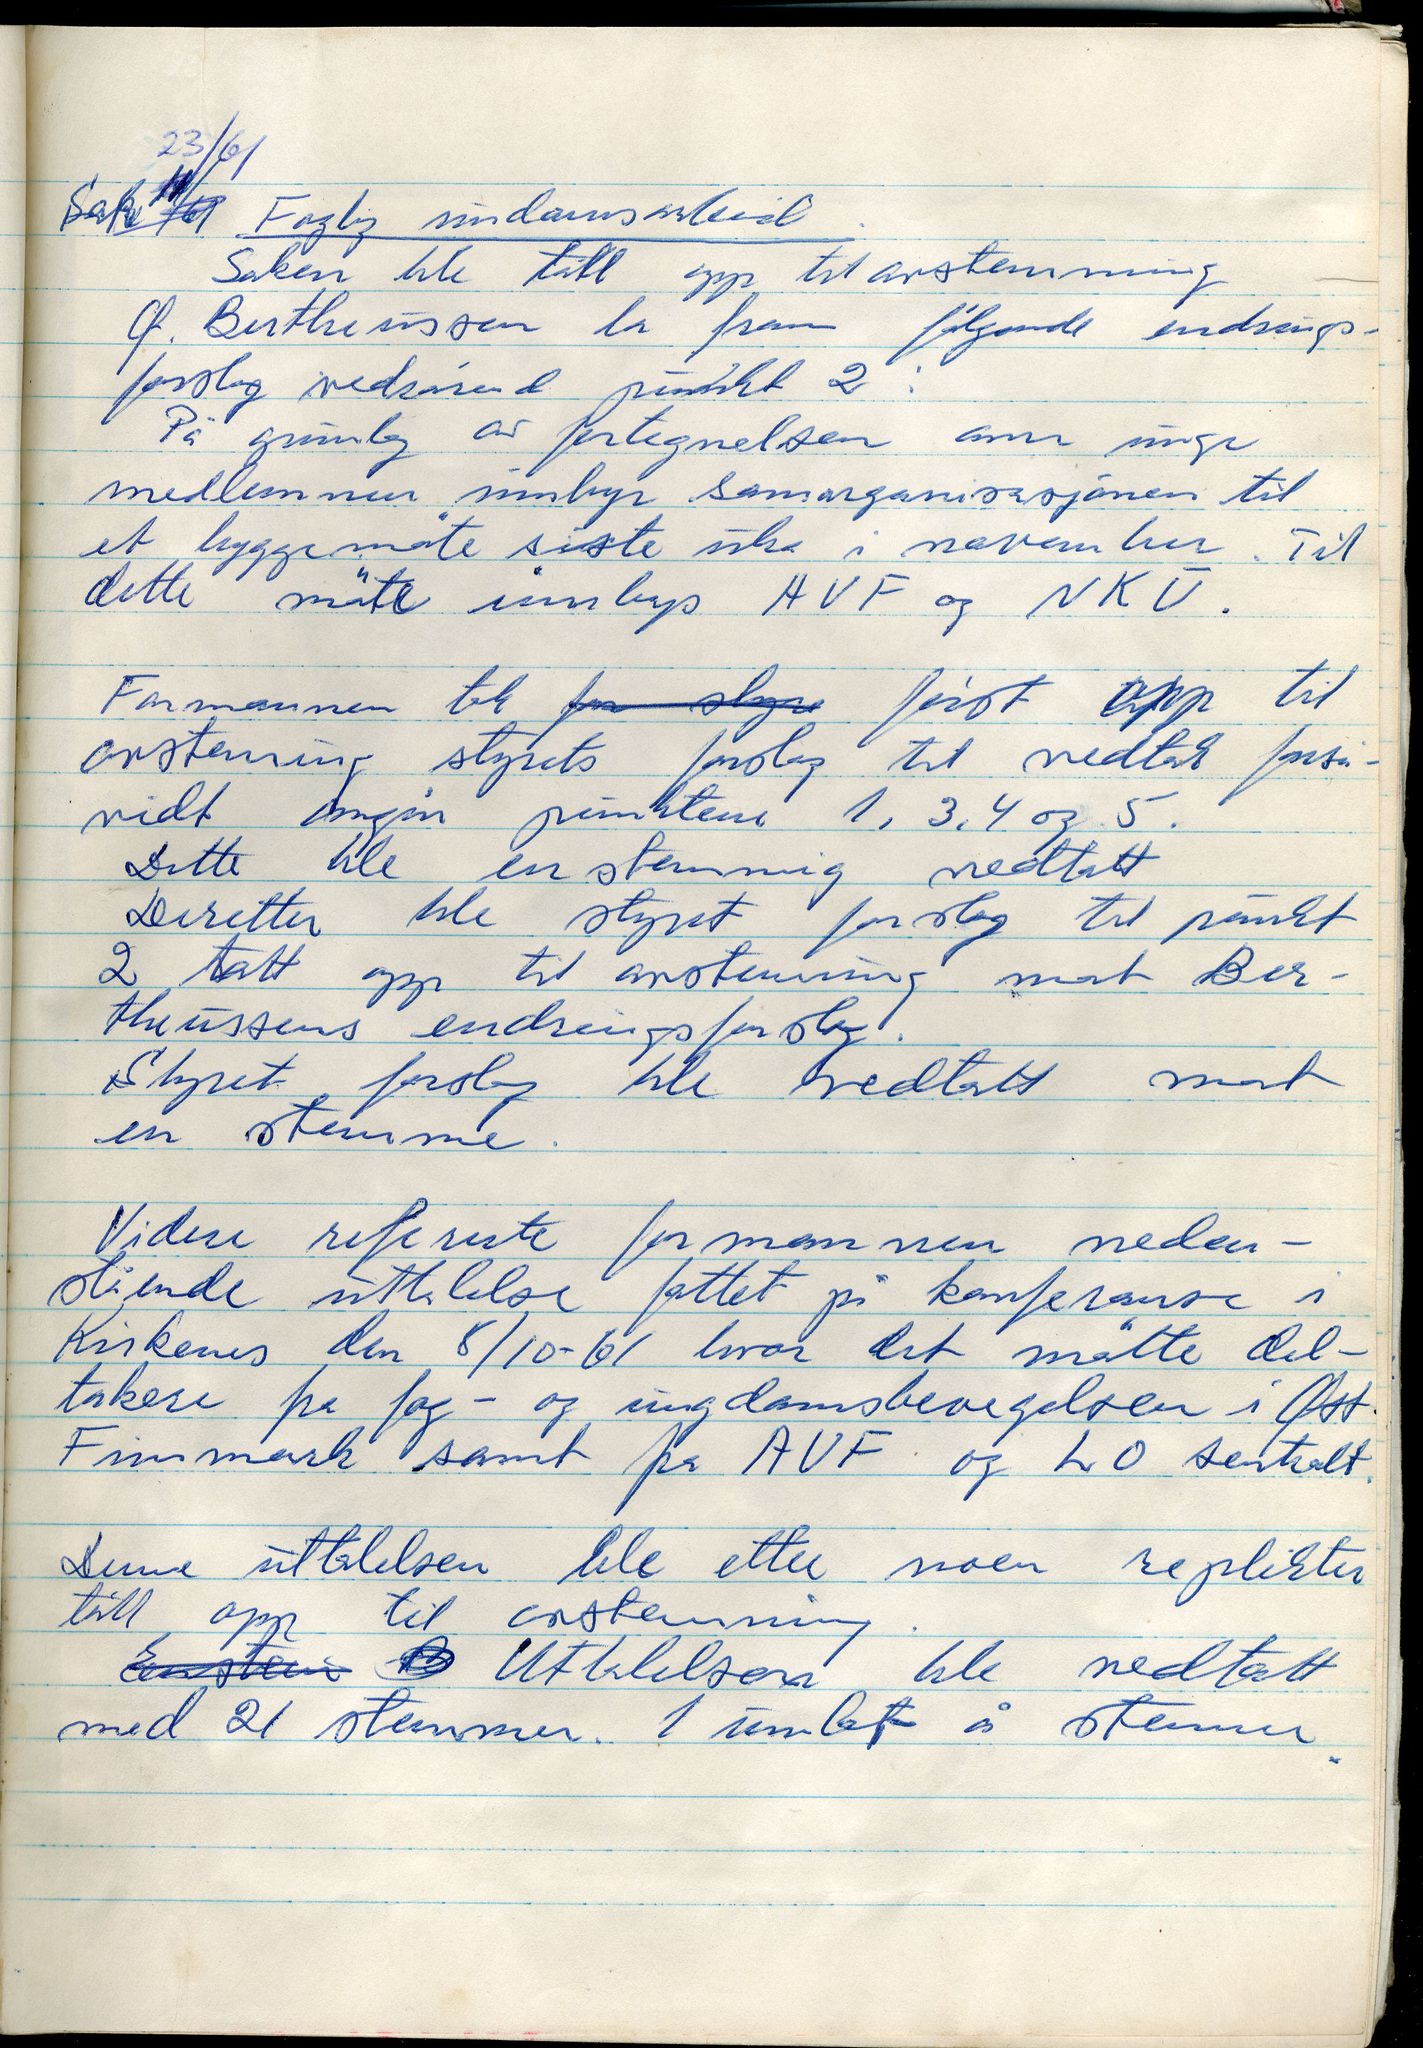 23/61
Sak Faglig undomsarbeid.
Saken ble tatt opp til avstemning
O. Bertheussen la fram følgende endrings-
forslag vedrørend punkt 2:
På grunlag av fortegnelsen over unge
medlemmer innbyr samorganisasjonen til
et hyggemøte siste uka i november. Til
dette møte innbys AUF og NKU.
Formannen tok for styre først opp til
avstemning styrets forslag til vedtak forså-
vidt angår punktene 1, 3, 4 og 5.
Dette ble enstemmig vedtatt
Deretter ble styret forslag til punkt
2 tatt opp til avstemning mot Ber-
theussens endringsforslag.
Styret forslag ble vedtatt mot
en stemme.
Videre refererte formannen neden-
stående uttalelse fattet på konferanse i
Kirkenes den 8/10-61 hvor det møtte del-
takere fra fag- og ungdomsbevegelsen i Øst.
Finnmark samt fra AUF og LO sentralt.
Denne uttalelsen ble etter noen replikker
tatt opp til avstemning.
Uttalelsen ble vedtatt
med 21 stemmer. 1 unlot å stemme.